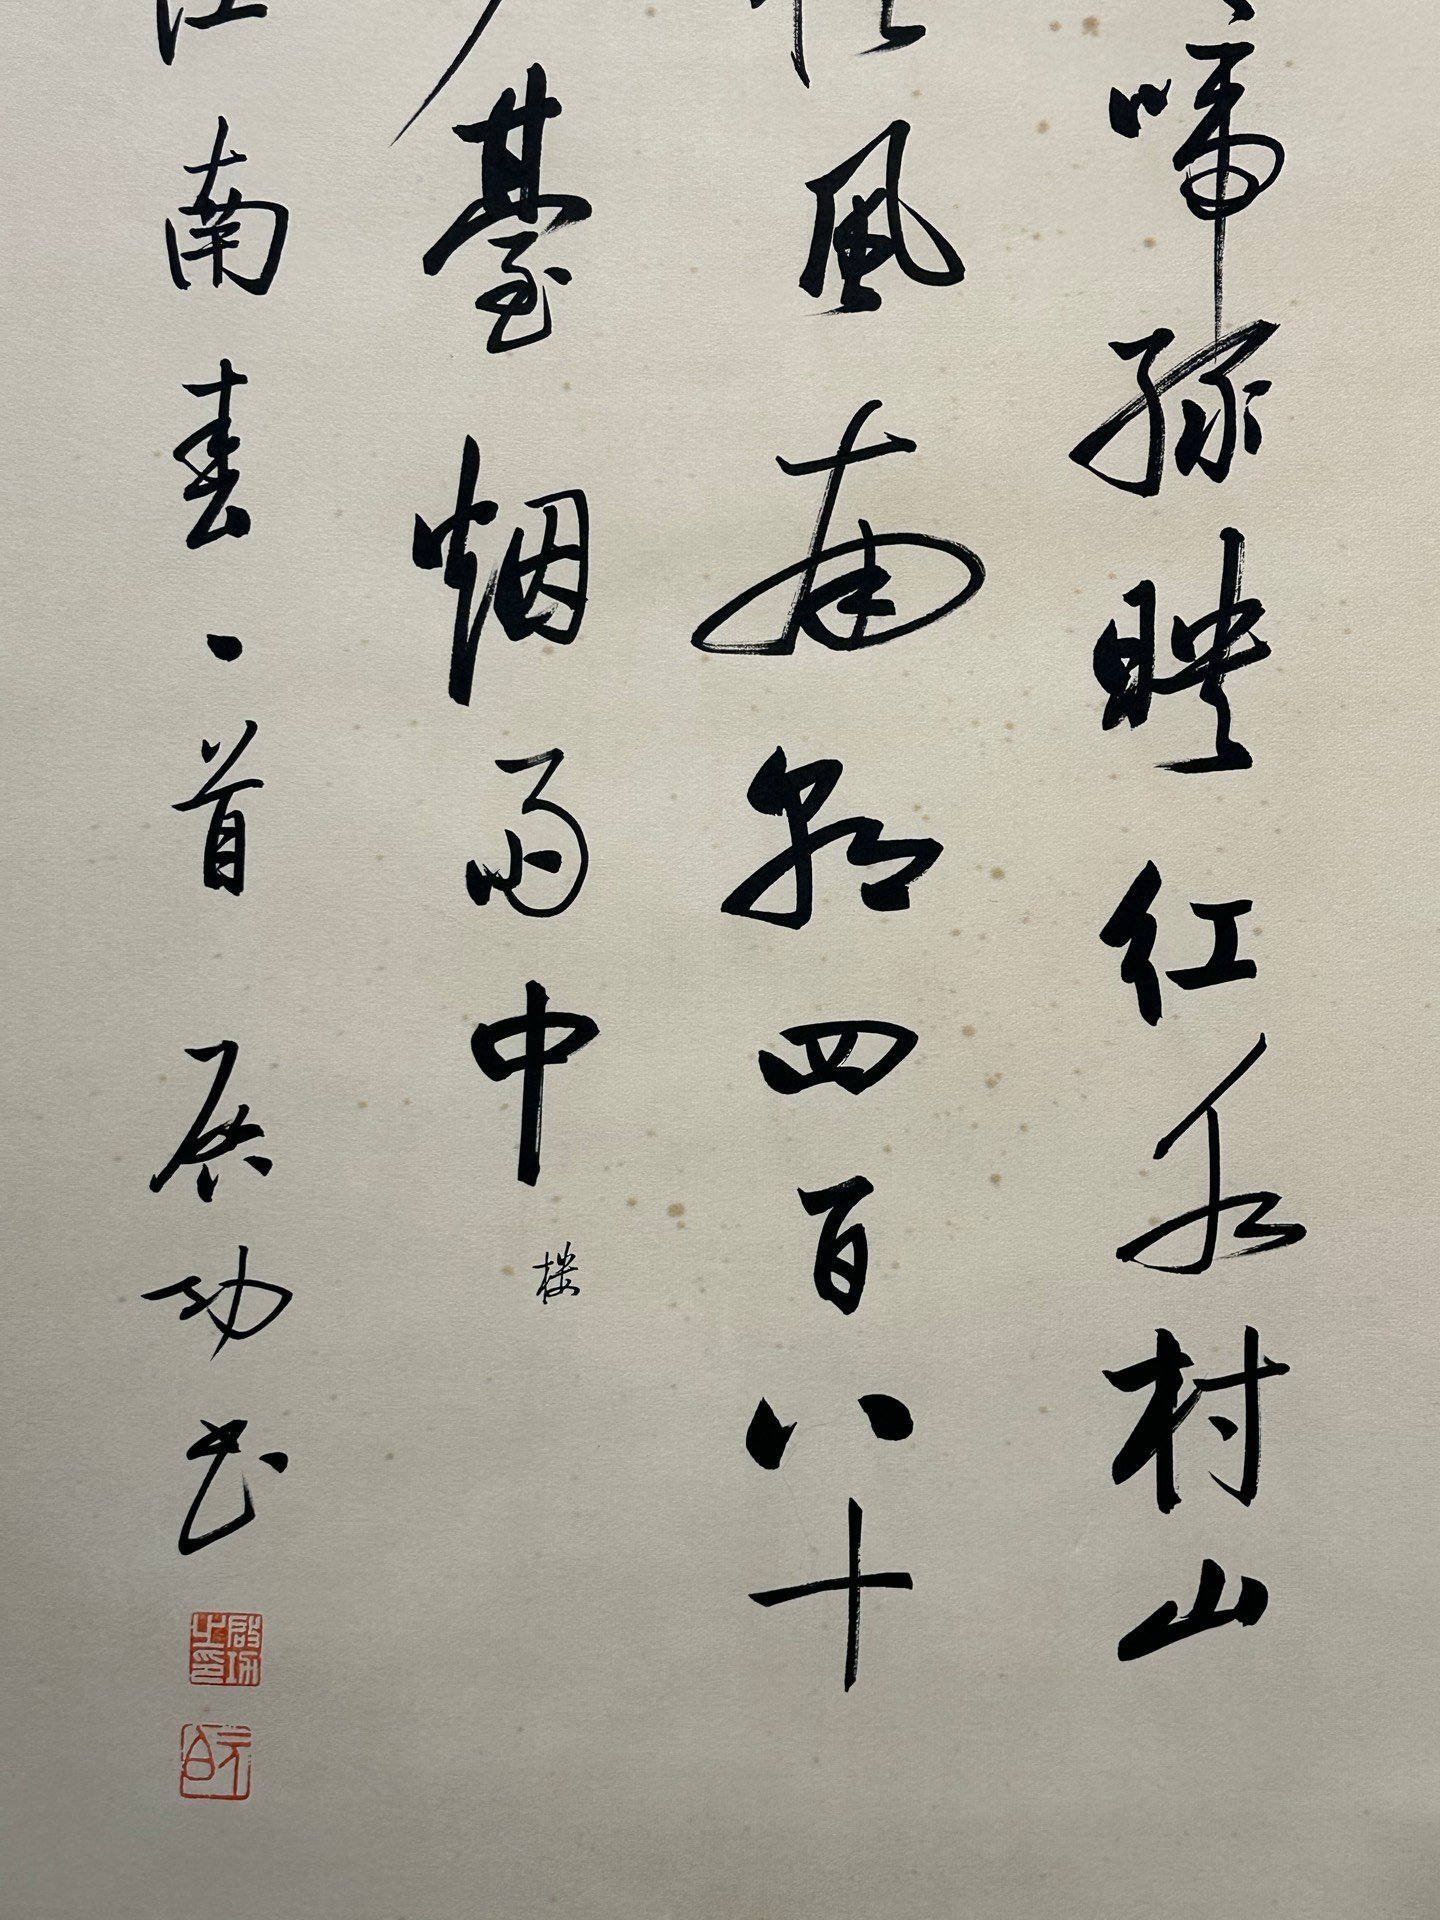 啼绿映红水村山
風南朝四百八十
臺烟雨中
楼
江南春一首 启功书
启功之印
元白